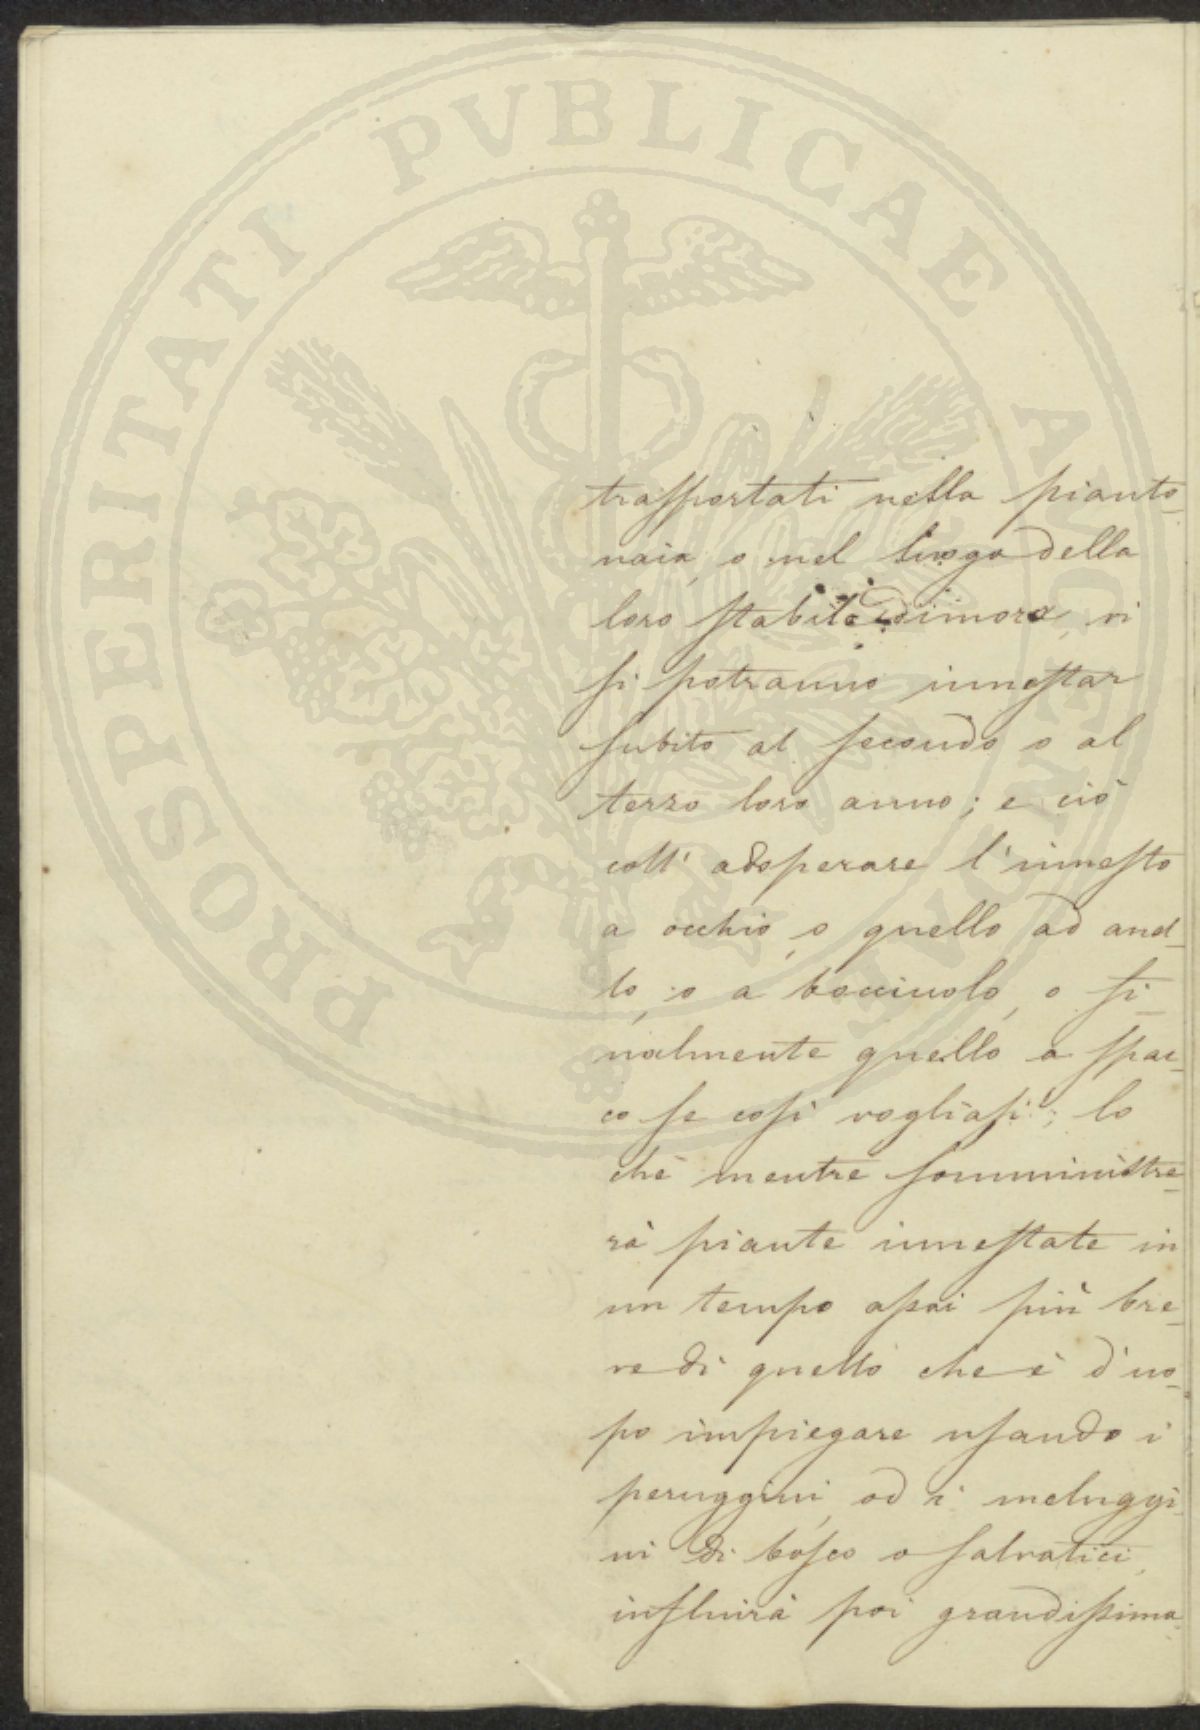 PROSPERITATI PVBLICAE AVGENDAE
trasportati nella pianto-
naia, o nel luogo della
loro stabile dimora, vi
si potranno innestar
subito al secondo o al
terzo loro anno; e ciò
coll' adoperare l'innesto
a occhio, o quello ad anel-
lo, o a bocciuolo, o fi-
nalmente quello a spac-
co se così vogliasi; lo
chè mentre somministre-
rà piante innestate in
un tempo assai più bre-
ve di quello che è d'uo-
po impiegare usando i
peruggini, od i meluggi-
ni di bosco o salvatici,
influirà poi grandissima-